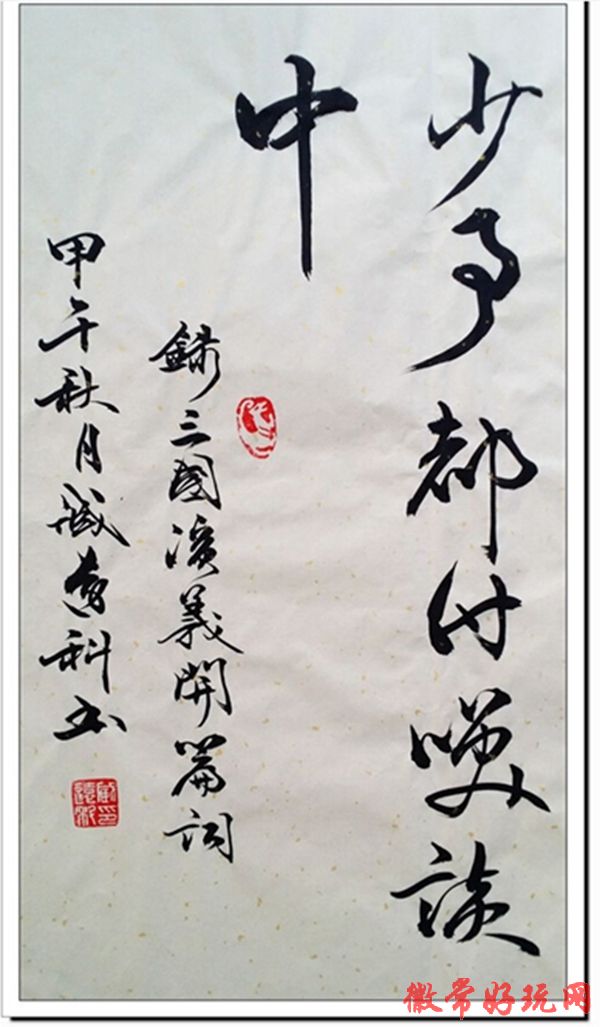 少事都付咲談
中
錄三國演義開篇詞
甲午秋月臧科书
微常好玩网